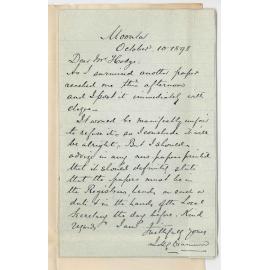 Moonta
October 10 1898
Dear Mr Hodge
As I surmised another paper
reached me this afternoon
and I post it immediately with
It would be manifestly unfair
to refuse it, so I conclude it will
be alright. But I should
advise in any new papers printed
that it should definitely state
that the papers must be in
the Registrars hands on such a
date & in the hands of the Local
Secretary the day before. Kind
regards I am
Faithfully Yours